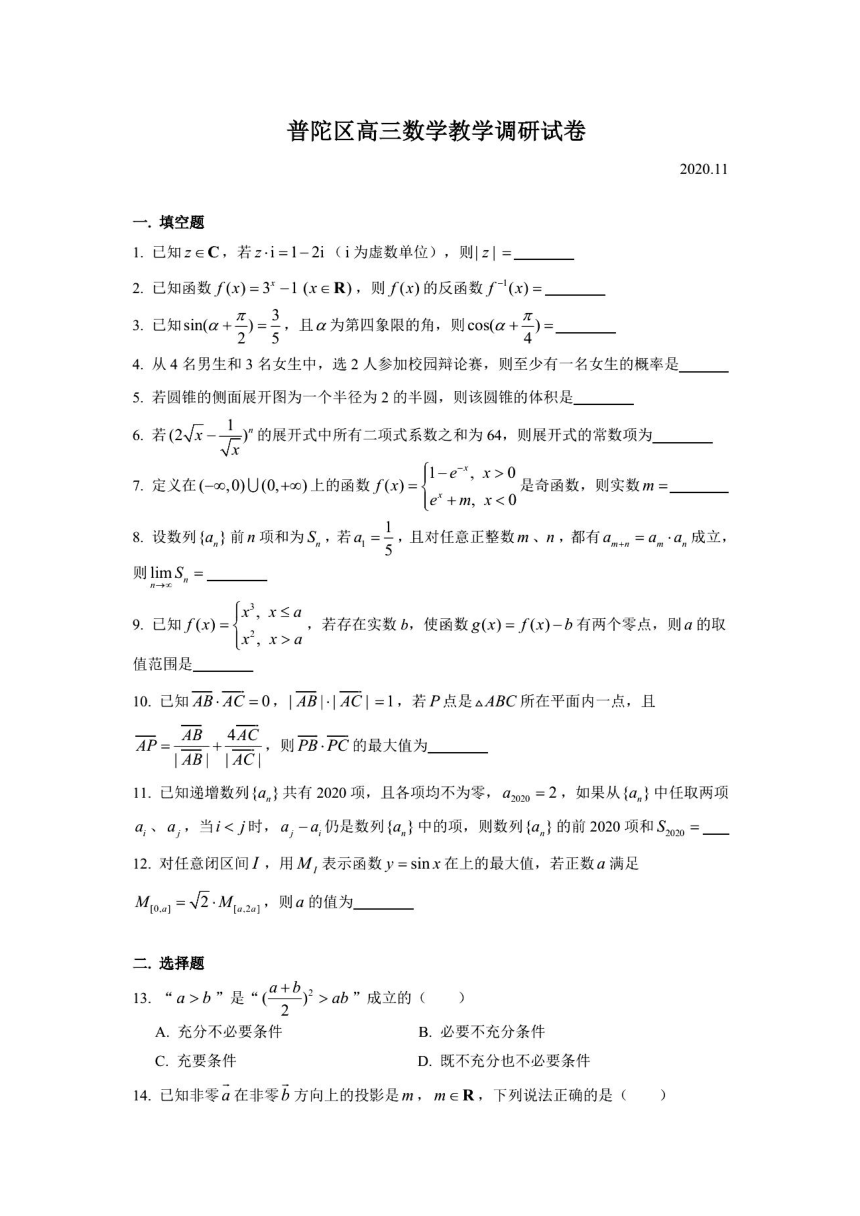 普陀区高三数学教学调研试卷
2020.11
一. 填空题
1. 已知 z ∈ C，若 z · i = 1 − 2i （ i 为虚数单位），则 | z | = ________
2. 已知函数 f(x) = 3^x − 1 (x ∈ R)，则 f(x) 的反函数 f^{-1}(x) = ________
3. 已知 sin(α + π/2) = 3/5，且 α 为第四象限的角，则 cos(α + π/4) = ________
4. 从 4 名男生和 3 名女生中，选 2 人参加校园辩论赛，则至少有一名女生的概率是______
5. 若圆锥的侧面展开图为一个半径为 2 的半圆，则该圆锥的体积是________
6. 若 (2√x − 1/√x)^n 的展开式中所有二项式系数之和为 64，则展开式的常数项为________
7. 定义在 (−∞,0)∪(0,+∞) 上的函数 f(x) = { 1 − e^{-x}, x > 0; e^x + m, x < 0 是奇函数，则实数 m = ________
8. 设数列 {a_n} 前 n 项和为 S_n，若 a_1 = 1/5，且对任意正整数 m 、n，都有 a_{m+n} = a_m · a_n 成立，
则 lim_{n→∞} S_n = ________
9. 已知 f(x) = { x^3, x ≤ a; x^2, x > a，若存在实数 b，使函数 g(x) = f(x) − b 有两个零点，则 a 的取
值范围是________
10. 已知 AB · AC = 0，| AB | · | AC | = 1，若 P 点是 △ABC 所在平面内一点，且
AP = AB/| AB | + 4AC/| AC |，则 PB · PC 的最大值为________
11. 已知递增数列 {a_n} 共有 2020 项，且各项均不为零，a_{2020} = 2，如果从 {a_n} 中任取两项
a_i 、 a_j，当 i < j 时，a_j − a_i 仍是数列 {a_n} 中的项，则数列 {a_n} 的前 2020 项和 S_{2020} = ____
12. 对任意闭区间 I，用 M_I 表示函数 y = sin x 在上的最大值，若正数 a 满足
M_{[0,a]} = √2 · M_{[a,2a]}，则 a 的值为________
二. 选择题
13. “ a > b ” 是 “ ((a+b)/2)^2 > ab ” 成立的（　　）
A. 充分不必要条件　　B. 必要不充分条件
C. 充要条件　　D. 既不充分也不必要条件
14. 已知非零 a⃗ 在非零 b⃗ 方向上的投影是 m，m ∈ R，下列说法正确的是（　　）